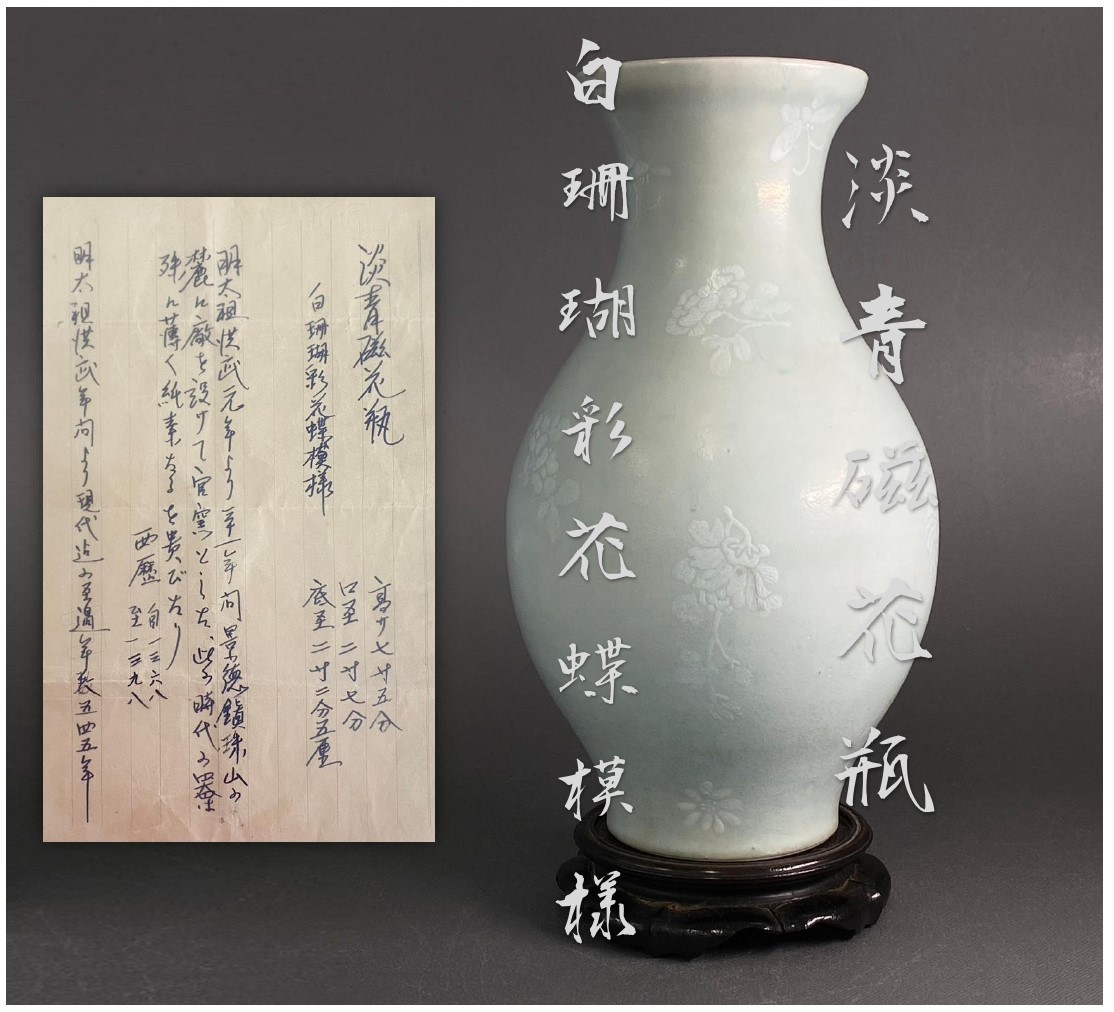 淡青磁花瓶
白珊瑚彩花蝶模様
淡青磁花瓶
白珊瑚彩花蝶模様
高サ七寸五分
口至二寸七分
底至二寸二分五厘
明太祖洪武元年より三一年間景徳鎮珠山の
麓に廠を設けて官窯とした、此の時代の器
殊に薄く純素なるを貴びたり
西歴 自一三六八
至一三九八
明太祖洪武年間より現代迄の至過年数五四五年